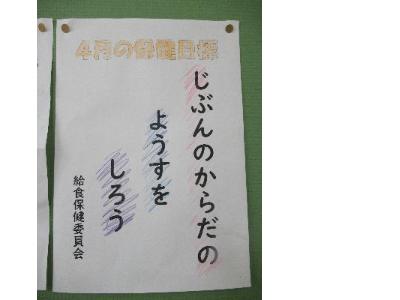 4月の保健目標
じぶんのからだの
ようすを
しろう
給食保健委員会